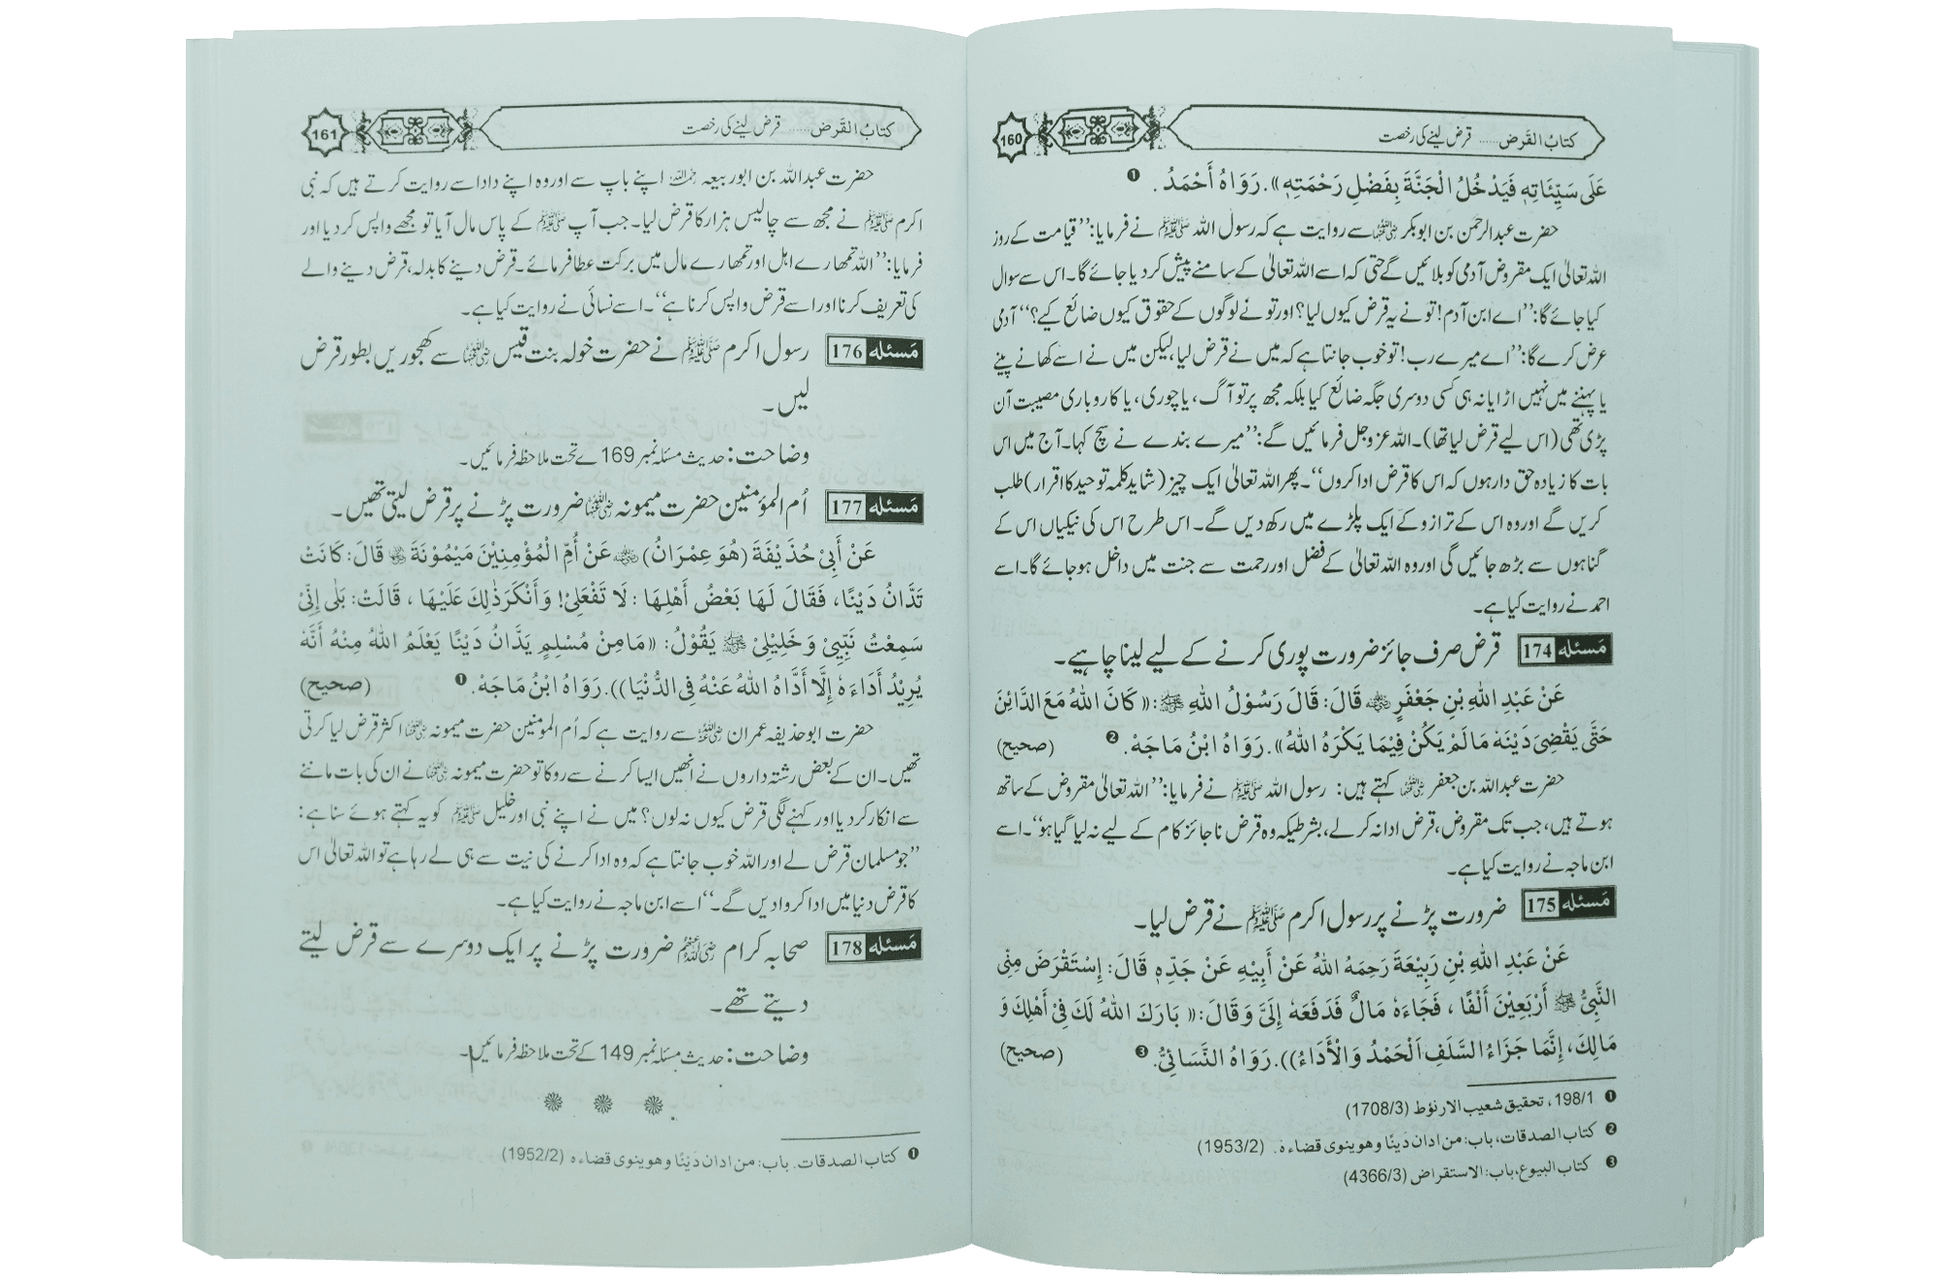 كتابُ القَرض ...... قرض لینے کی رخصت
160
عَلَى سَيِّئَاتِهٖ فَيَدْخُلُ الْجَنَّةَ بِفَضْلِ رَحْمَتِهٖ». رَوَاهُ أَحْمَدُ . ❶
حضرت عبدالرحمن بن ابوبکر رضی اللہ عنہما سے روایت ہے کہ رسول اللہ ﷺ نے فرمایا: ’’قیامت کے روز
اللہ تعالیٰ ایک مقروض آدمی کو بلائیں گے حتی کہ اسے اللہ تعالیٰ کے سامنے پیش کر دیا جائے گا۔ اس سے سوال
کیا جائے گا: ’’اے ابن آدم! تو نے یہ قرض کیوں لیا؟ اور تو نے لوگوں کے حقوق کیوں ضائع کیے؟‘‘ آدمی
عرض کرے گا: ’’اے میرے رب! تو خوب جانتا ہے کہ میں نے قرض لیا، لیکن میں نے اسے کھانے پینے
یا پہننے میں نہیں اڑایا نہ ہی کسی دوسری جگہ ضائع کیا بلکہ مجھ پر تو آگ، یا چوری، یا کاروباری مصیبت آن
پڑی تھی (اس لیے قرض لیا تھا)۔ اللہ عزوجل فرمائیں گے: ’’میرے بندے نے سچ کہا۔ آج میں اس
بات کا زیادہ حق دار ہوں کہ اس کا قرض ادا کروں‘‘۔ پھر اللہ تعالیٰ ایک چیز (شاید کلمہ توحید کا اقرار) طلب
کریں گے اور وہ اس کے ترازو کے ایک پلڑے میں رکھ دیں گے۔ اس طرح اس کی نیکیاں اس کے
گناہوں سے بڑھ جائیں گی اور وہ اللہ تعالیٰ کے فضل اور رحمت سے جنت میں داخل ہو جائے گا۔ اسے
احمد نے روایت کیا ہے۔
مَسئله 174 قرض صرف جائز ضرورت پوری کرنے کے لیے لینا چاہیے۔
عَنْ عَبْدِ اللهِ بْنِ جَعْفَرٍ رضی اللہ عنہ قَالَ: قَالَ رَسُوْلُ اللهِ ﷺ: « كَانَ اللهُ مَعَ الدَّائِنَ
حَتّٰى يَقْضِىَ دَيْنَهٗ مَالَمْ يَكُنْ فِيْمَا يَكْرَهُ اللهُ». رَوَاهُ ابْنُ مَاجَهْ. ❷ (صحيح)
حضرت عبداللہ بن جعفر رضی اللہ عنہما کہتے ہیں: رسول اللہ ﷺ نے فرمایا: ’’اللہ تعالیٰ مقروض کے ساتھ
ہوتے ہیں، جب تک مقروض، قرض ادا نہ کر لے، بشرطیکہ وہ قرض ناجائز کام کے لیے نہ لیا گیا ہو‘‘۔ اسے
ابن ماجہ نے روایت کیا ہے۔
مَسئله 175 ضرورت پڑنے پر رسول اکرم ﷺ نے قرض لیا۔
عَنْ عَبْدِ اللهِ بْنِ رَبِيْعَةَ رَحِمَهُ اللهُ عَنْ أَبِيْهِ عَنْ جَدِّهٖ قَالَ: إِسْتَقْرَضَ مِنِّى
النَّبِىُّ ﷺ أَرْبَعِيْنَ أَلْفًا ، فَجَاءَهٗ مَالٌ فَدَفَعَهٗ إِلَىَّ وَقَالَ: « بَارَكَ اللهُ لَكَ فِىْ أَهْلِكَ وَ
مَالِكَ، إِنَّمَا جَزَاءُ السَّلَفِ اَلْحَمْدُ وَالْأَدَاءُ)). رَوَاهُ النَّسَائِىُّ. ❸ (صحيح)
❶ 198/1، تحقيق شعيب الارنؤط (1708/3)
❷ كتاب الصدقات، باب: من ادان دَينًا وهو ينوى قضاءه. (1953/2)
❸ كتاب البيوع، باب: الاستقراض (4366/3)
كتابُ القَرض ...... قرض لینے کی رخصت
161
حضرت عبداللہ بن ابو ربیعہ رحمہ اللہ اپنے باپ سے اور وہ اپنے دادا سے روایت کرتے ہیں کہ نبی
اکرم ﷺ نے مجھ سے چالیس ہزار کا قرض لیا۔ جب آپ ﷺ کے پاس مال آیا تو مجھے واپس کر دیا اور
فرمایا: ’’اللہ تمھارے اہل اور تمھارے مال میں برکت عطا فرمائے۔ قرض دینے کا بدلہ، قرض دینے والے
کی تعریف کرنا اور اسے قرض واپس کرنا ہے‘‘۔ اسے نسائی نے روایت کیا ہے۔
مَسئله 176 رسول اکرم ﷺ نے حضرت خولہ بنت قیس رضی اللہ عنہا سے کھجوریں بطور قرض
لیں۔
وضاحت: حدیث مسئلہ نمبر 169 ے تحت ملاحظہ فرمائیں۔
مَسئله 177 اُم المؤمنین حضرت میمونہ رضی اللہ عنہا ضرورت پڑنے پر قرض لیتی تھیں۔
عَنْ أَبِىْ حُذَيْفَةَ (هُوَ عِمْرَانُ) رضی اللہ عنہ عَنْ أُمِّ الْمُؤْمِنِيْنَ مَيْمُوْنَةَ رضی اللہ عنہا قَالَ: كَانَتْ
تَدَّانُ دَيْنًا، فَقَالَ لَهَا بَعْضُ أَهْلِهَا : لَا تَفْعَلِىْ! وَأَنْكَرَ ذٰلِكَ عَلَيْهَا ، قَالَتْ: بَلٰى إِنِّىْ
سَمِعْتُ نَبِّيِىْ وَخَلِيْلِىْ ﷺ يَقُوْلُ: «مَا مِنْ مُسْلِمٍ يَدَّانُ دَيْنًا يَعْلَمُ اللهُ مِنْهُ أَنَّهٗ
يُرِيْدُ أَدَاءَهٗ إِلَّا أَدَّاهُ اللهُ عَنْهُ فِى الدُّنْيَا)). رَوَاهُ ابْنُ مَاجَهْ. ❶ (صحيح)
حضرت ابو حذیفہ عمران رضی اللہ عنہ سے روایت ہے کہ اُم المومنین حضرت میمونہ رضی اللہ عنہا اکثر قرض لیا کرتی
تھیں۔ ان کے بعض رشتہ داروں نے انھیں ایسا کرنے سے روکا تو حضرت میمونہ رضی اللہ عنہا نے ان کی بات ماننے
سے انکار کر دیا اور کہنے لگی قرض کیوں نہ لوں؟ میں نے اپنے نبی اور خلیل ﷺ کو یہ کہتے ہوئے سنا ہے:
’’جو مسلمان قرض لے اور اللہ خوب جانتا ہے کہ وہ ادا کرنے کی نیت سے ہی لے رہا ہے تو اللہ تعالیٰ اس
کا قرض دنیا میں ادا کروا دیں گے۔‘‘ اسے ابن ماجہ نے روایت کیا ہے۔
مَسئله 178 صحابہ کرام رضی اللہ عنہم ضرورت پڑنے پر ایک دوسرے سے قرض لیتے
دیتے تھے۔
وضاحت: حدیث مسئلہ نمبر 149 کے تحت ملاحظہ فرمائیں۔
❶ كتاب الصدقات. باب: من ادان دَيْنًا وهو ينوى قضاءه (1952/2)